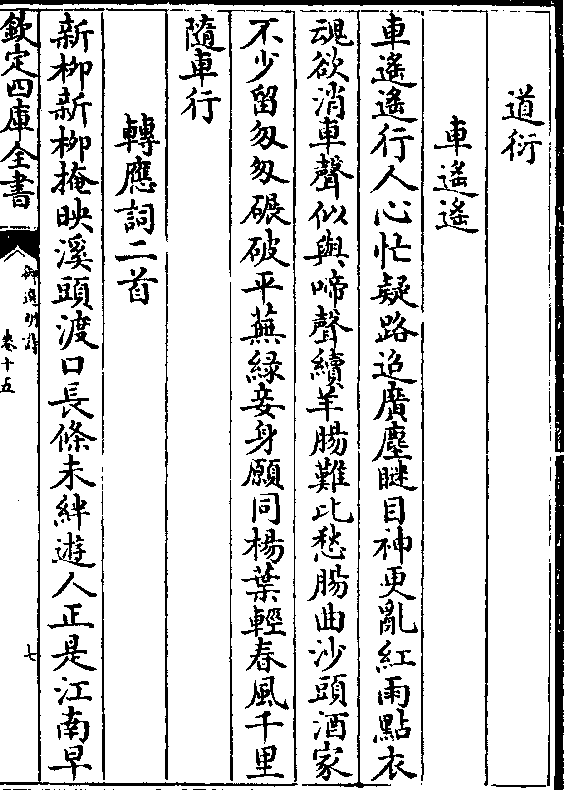 道衍
車遙遙
車遙遙行人心忙疑路迢廣塵瞇目神更亂紅雨點衣
魂欲消車聲似與啼聲續羊腸難比愁腸曲沙頭酒家
不少留匆匆碾破平蕪綠妾身願同楊葉輕春風千里
隨車行
轉應詞二首
新柳新柳掩映溪頭渡口長條未絆遊人正是江南早
欽定四庫全書
御選明詩
卷十五
七